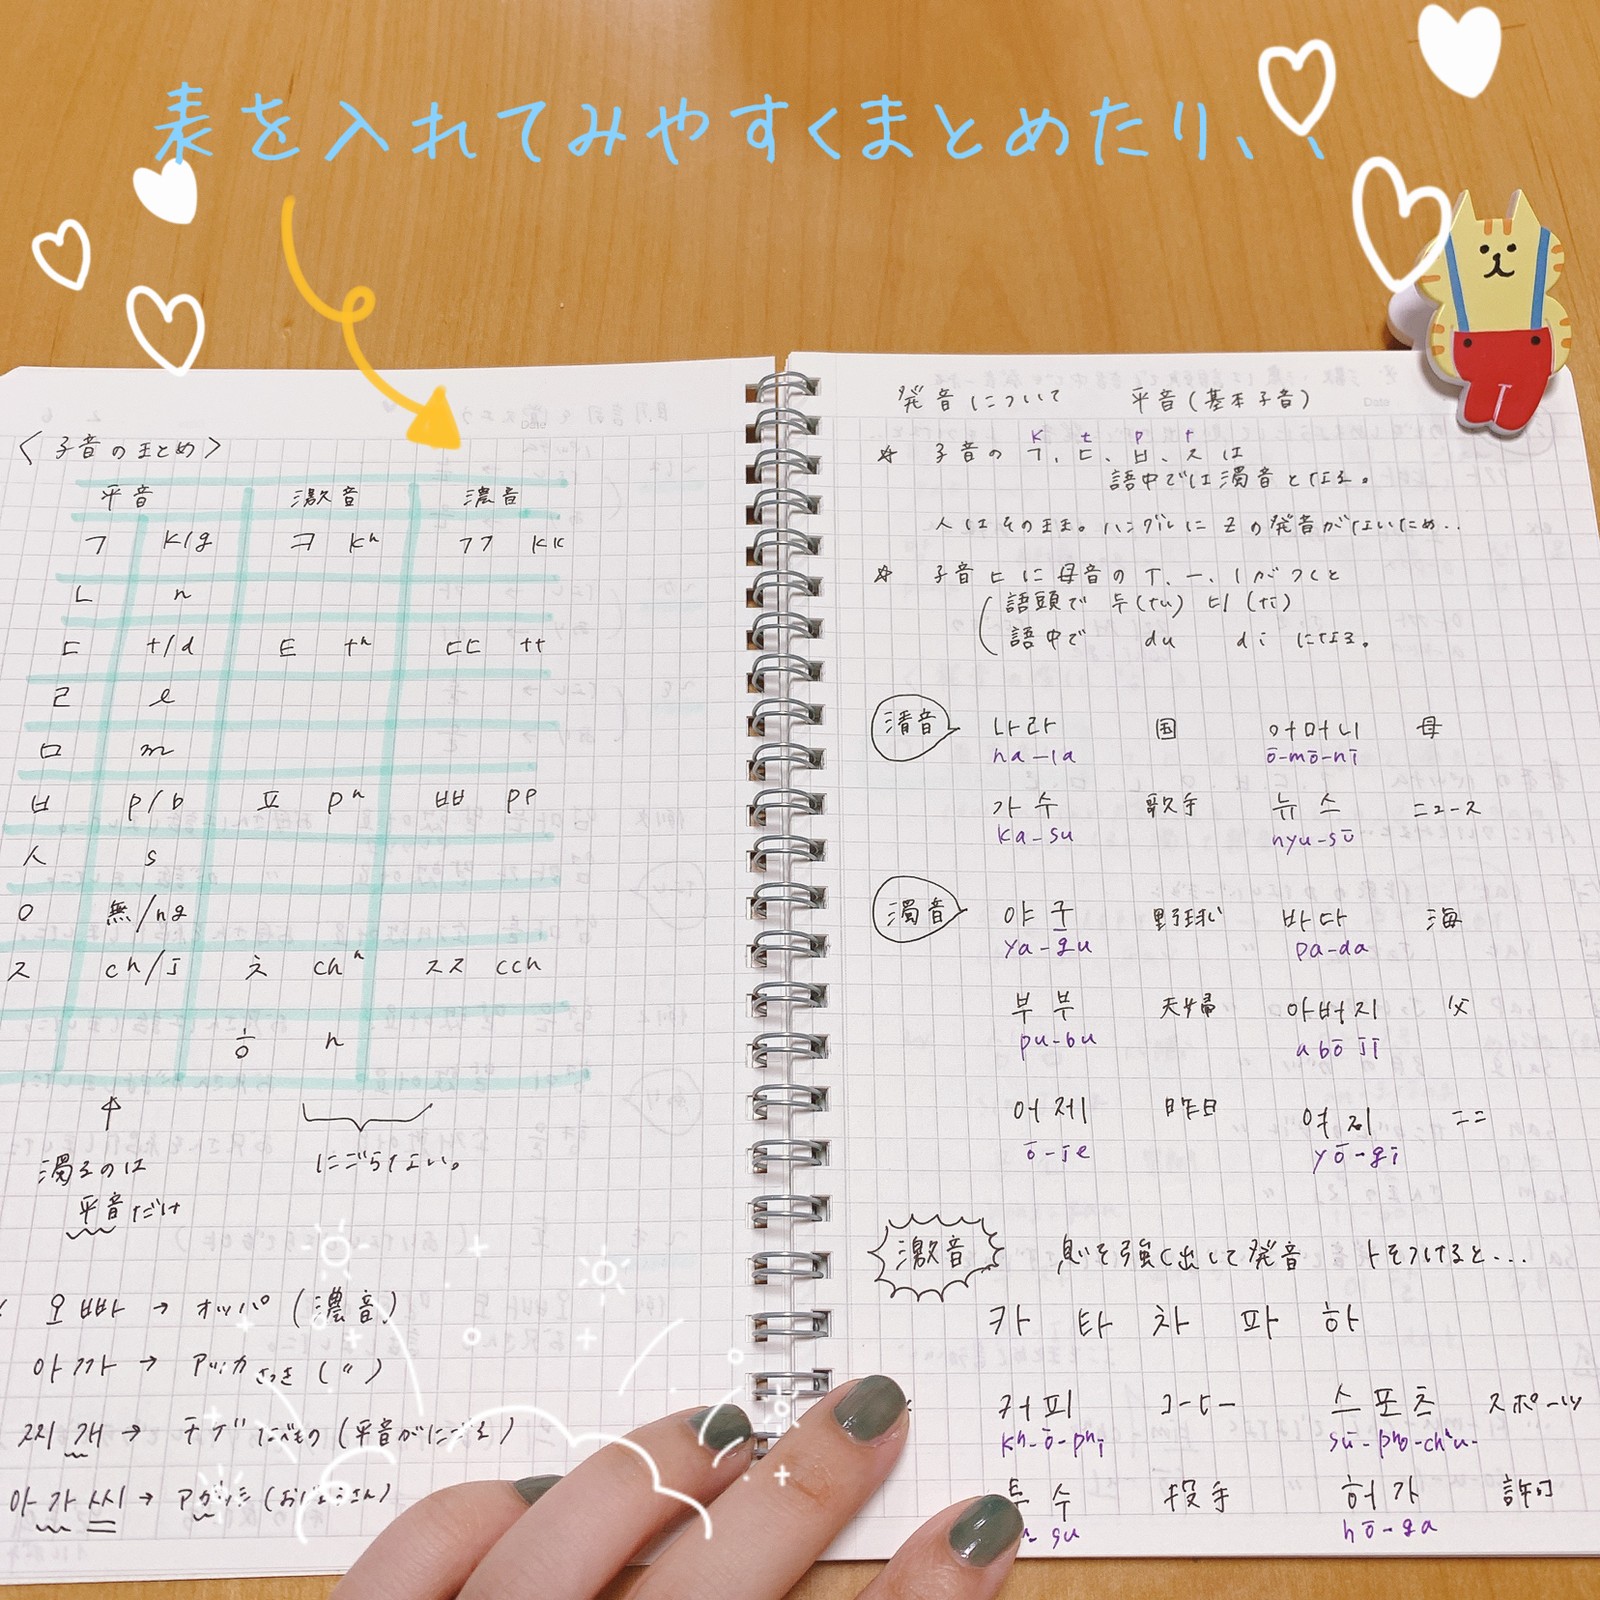 表を入れてみやすくまとめたり、、
〈子音のまとめ〉
平音 激音 濃音
ㄱ k/g ㅋ kʰ ㄲ kk
ㄴ n
ㄷ t/d ㅌ tʰ ㄸ tt
ㄹ l
ㅁ m
ㅂ p/b ㅍ pʰ ㅃ pp
ㅅ s
ㅇ 無/ng
ㅈ ch/j ㅊ chʰ ㅉ cch
ㅎ h
濁るのは
平音だけ
にごらない。
오빠 → オッパ (濃音)
아까 → アッカ さっき (〃)
찌개 → チゲ なべもの (平音がにごる)
아가씨 → アガッシ (おじょうさん)
発音について 平音(基本子音)
k t p t
☆ 子音の ㄱ、ㄷ、ㅂ、ㅈ は
語中では濁音となる。
人はそのまま。ハングルに Z の発音がないため..
☆ 子音 ㄷ に 母音の ㅜ、ㅡ、ㅣ がつくと
語頭で 두(tu) 디(ti)
語中で du di になる。
清音 나라 国 어머니 母
na-la ō-mō-nī
가수 歌手 뉴스 ニュース
ka-su nyu-sū
濁音 야구 野球 바다 海
ya-gu pa-da
부부 夫婦 아버지 父
pu-bu abō jī
어제 昨日 여기 ここ
ō-je yō-gi
激音 息を強く出して発音 トをつけると...
카 타 차 파 하
커피 コーヒー 스포츠 スポーツ
kʰ-ō-pʰi sū-pho-chʰu-
투수 投手 허가 許可
su hō-ga